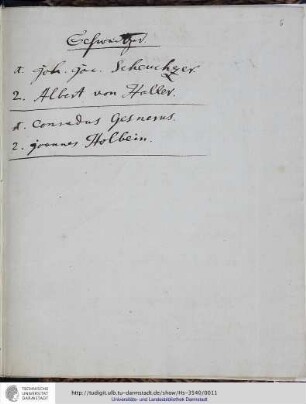 Schweitzer
6
1. Joh. Jac. Scheuchzer.
2. Albert von Haller.
1. Conradus Gesnerus.
2. Joannes Holbein.
TECHNISCHE
UNIVERSITÄT
DARMSTADT
http://tudigit.ulb.tu-darmstadt.de/show/Hs-3540/0011
Universitäts- und Landesbibliothek Darmstadt